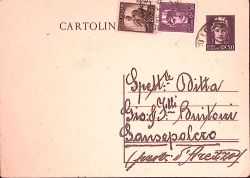 CARTOLIN
Spett.le Ditta
Gio. & F.lli Buitoni
Sansepolcro
(prov. d'Arezzo)